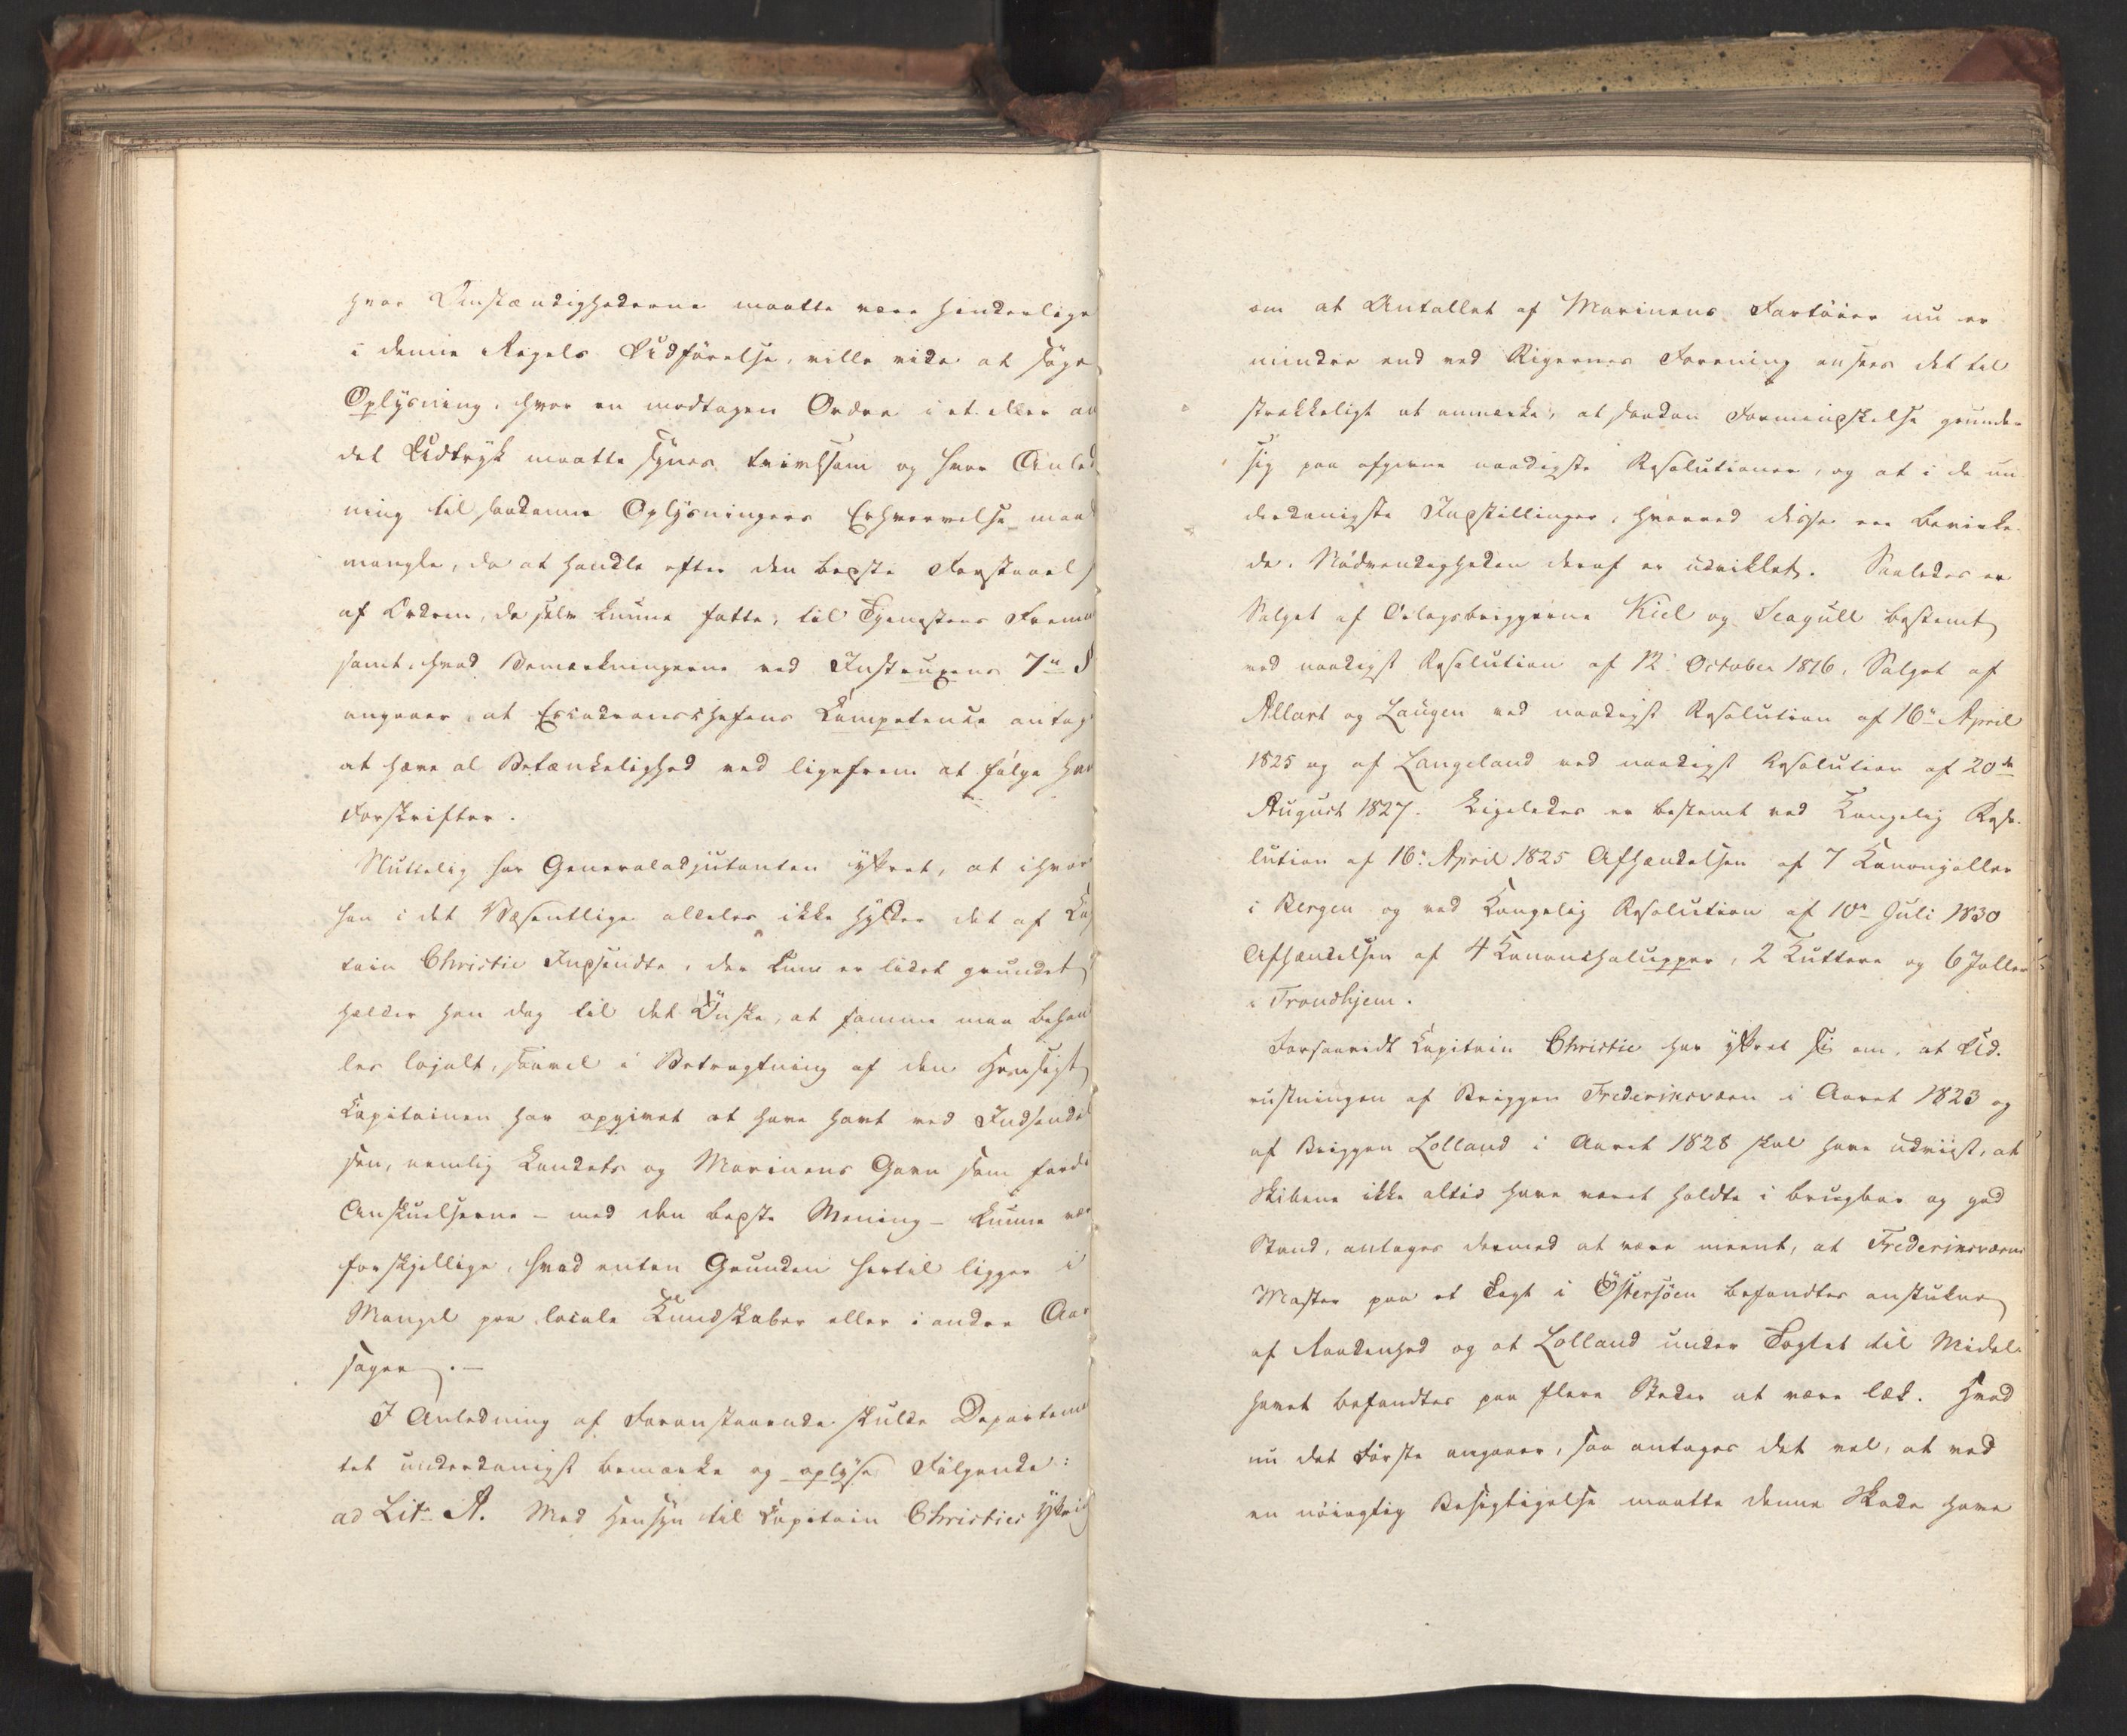 hvor Omstændighederne maatte være hinderlige
i denne Regels Udførelse, ville vide at søge
Oplysning, hvor en modtagen Ordre i et eller an
det Udtryk maatte synes tvivlsom og hvor Anled
ning til saadanne Oplysningers Erhvervelse maat
mangle, da at handle efter den bedste Forstaael
af Ordren, de selv kunne fatte, til Tjenestens Fremm
samt hvad Bemærkningerne ved Instruxens 7de §
angaaer, at Escadrechefens Kompetence antag
at hæve al Betænkelighed ved ligefrem at følge hans
Forskrifter.
Sluttelig har Generaladjutanten yttret, at ihvor
han i det Væsentlige alleles ikke hylder det af Kap
tain Christie Indsendte, der kun er lidet grundet
holder han dog til det Ønske, at samme maa behand
les lojalt, saavel i Betragtning af den Hensigt
Kapitainen har opgivet at have havt ved Indsendel
sen, nemlig Landets og Marinens Gavn som fordi
Anskuelserne – med den bedste Mening – kunne vær
forskjellige, hvad enten Grunden hertil ligger i
Mangel paa locale Kundskaber eller i andre Aar
sager. –
I Anledning af Foranstaaende skulde Departeme
tet underdanigst bemærke og oplyse Følgende:
ad Litr A. Med Hensyn til Capitain Christies Yttring
om at Antallet af Marinens Fartøier nu er
mindre end ved Rigernes Forening ansees det til
strækkeligt at anmærke, at saadan Formindskelse grunder
sig paa afgivne naadigste Resolutioner, og at i de un
derdanigste Indstillinger, hvorved disse ere bevirke
de, Nødvendigheden deraf er udviklet. Saaledes er
Salget af Orlogsbriggerne Kiel og Seagull bestemt
ved naadigst Resolution af 12. October 1816, Salget af
Allart og Laugen ved naadigst Resolution af 16de April
1825 og af Langeland ved naadigst Resolution af 20de
August 1827. Ligeledes er bestemt ved Kongelig Reso-
lution af 16de April 1825 Afhændelsen af 7 Kanonjoller
i Bergen og ved Kongelig Resolution af 10de Juli 1830
Afhændelsen af 4 Kanonchalupper, 2 Kuttere og 6 Joller
i Trondhjem.
Forsaavidt Capitain Christie har yttret sig om, at Ud-
rustningen af Briggen Frederiksværn i Aaret 1823 og
af Briggen Lolland i Aaret 1828 skal have udviist, at
Skibene ikke altid have været holdte i brugbar og god
Stand, antages dermed at være meent, at Frederiksværns
Master paa et Togt i Østersøen befandtes anstukne
af Raadenhed og at Lolland under Togtet til Middel-
havet befandtes paa flere Steder at være læk. Hvad
nu det Første angaaer, saa antages det vel, at ved
en nøiagtig Besigtigelse maatte denne Skade have